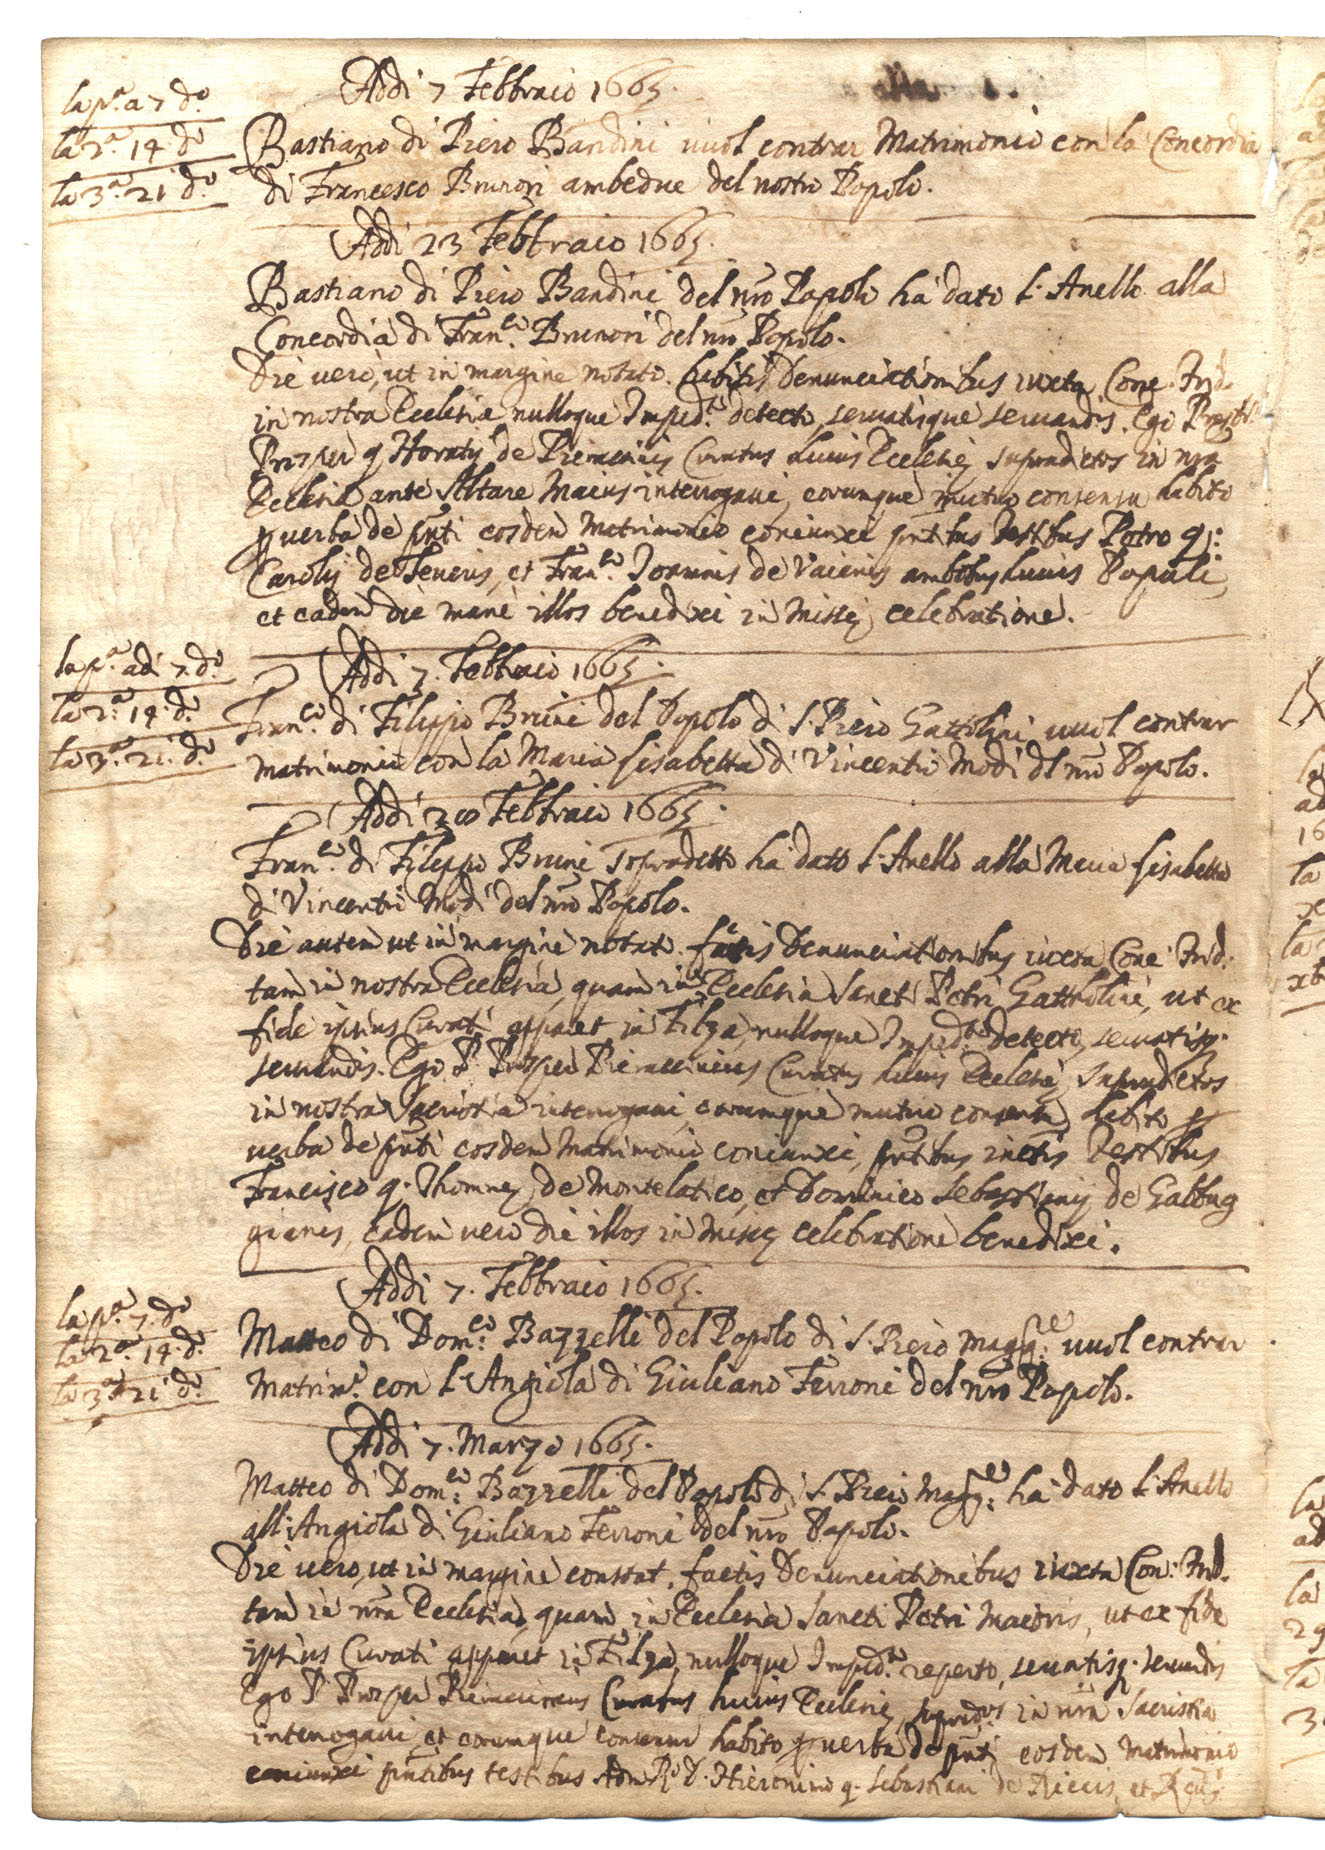 Addi 7 Febbraio 1665.
la p.a a 7 d.o
la 2.a 14 d.o
la 3.a 21 d.o
Bastiano di Piero Bandini vuol contrar Matrimonio con la Concordia
di Francesco Brunori ambedue del nostro Popolo.
Addi 23 Febbraio 1665.
Bastiano di Piero Bandini del nro Popolo ha dato l'Anello alla
Concordia di Fran.co Brunori del nro Popolo.
Die vero, ut in margine notato. habitis Denunciationibus iuxta Conc. Trid.
in nostra Ecclesia nulloque Imped.to detecto, servatisque servandis. Ego Presb.r
Prosper q Horatij de Pieraccinis Curatus huius Ecclesie, supradictos in nra
Ecclesia ante Altare Maius interrogavi, eorumque mutuo consensu habito
p verba de pnti eosdem Matrimonio coniunxi pntibus Testibus Petro q:
Carolij de Teneris, et Fran.co Joannis de Vaianis ambobus huius Populi,
et eadem die mane illos benedixi in Missę celebratione.
Addi 7. Febbraio 1665.
la p.a adi 7. d.o
la 2.a 14. d.o
la 3.a 21. d.o
Fran.co di Filippo Bruni del Popolo di S. Piero Gattolini vuol contrar
Matrimonio con la Maria Lisabetta di Vincentio Modi dl nro Popolo.
Addi 28 Febbraio 1665.
Fran.co di Filippo Bruni sopradetto ha dato l'Anello alla Maria Lisabetta
di Vincentio Modi del nro Popolo.
Die autem ut in margine notat. factis Denunciationibus iuxta Conc. Trid.
tam in nostra Ecclesia, quam in Ecclesia Sancti Petri Gattholini, ut ex
fide ipsius Curati apparet in Filza, nulloque Imped.to detecto, servatisq.
servandis. Ego P. Prosper Pieraccinius Curatus huius Ecclesię supradictos
in nostra Sacristia interrogavi, eorumque mutuo consensu habito p
verba de pnti eosdem Matrimonio coniunxi, pntibus Testibus
Francisco q. Thomę de Montelatico, et Dominico Sebastianij de Gabbug
gianis, eadem vero die illos in Missę celebratione benedixi.
Addi 7. Febbraio 1665.
la p.a 7. d.o
la 2.a 14. d.o
la 3.a 21 d.o
Matteo di Dom.co Bazzelli del Popolo di S. Piero Magg.re vuol contrar
Matrim.o con l'Angiola di Giuliano Ferroni del nro Popolo.
Addi 7. Marzo 1665.
Matteo di Dom.co Bazzelli del Popolo di S. Piero Magg.re ha dato l'Anello
all'Angiola di Giuliano Ferroni del nro Popolo.
Die vero, ut in margine constat, factis Denunciationibus iuxta Con: Trid.
tam in nra Ecclesia, quam in Ecclesia Sancti Petri Maioris, ut ex fide
ipsius Curati apparet in Filza, nulloque Imped.to reperto, servatisq. servandis
Ego P. Prosper Pieraccinius Curatus huius Ecclesię, supradi.os in nra Sacristia
interrogavi, et eorumque consensu habito p verba de pnti eosdem Matrimonio
coniunxi pntibus testibus Adm R.do D. Hieronimo q. Sebastiani de Riccis, et